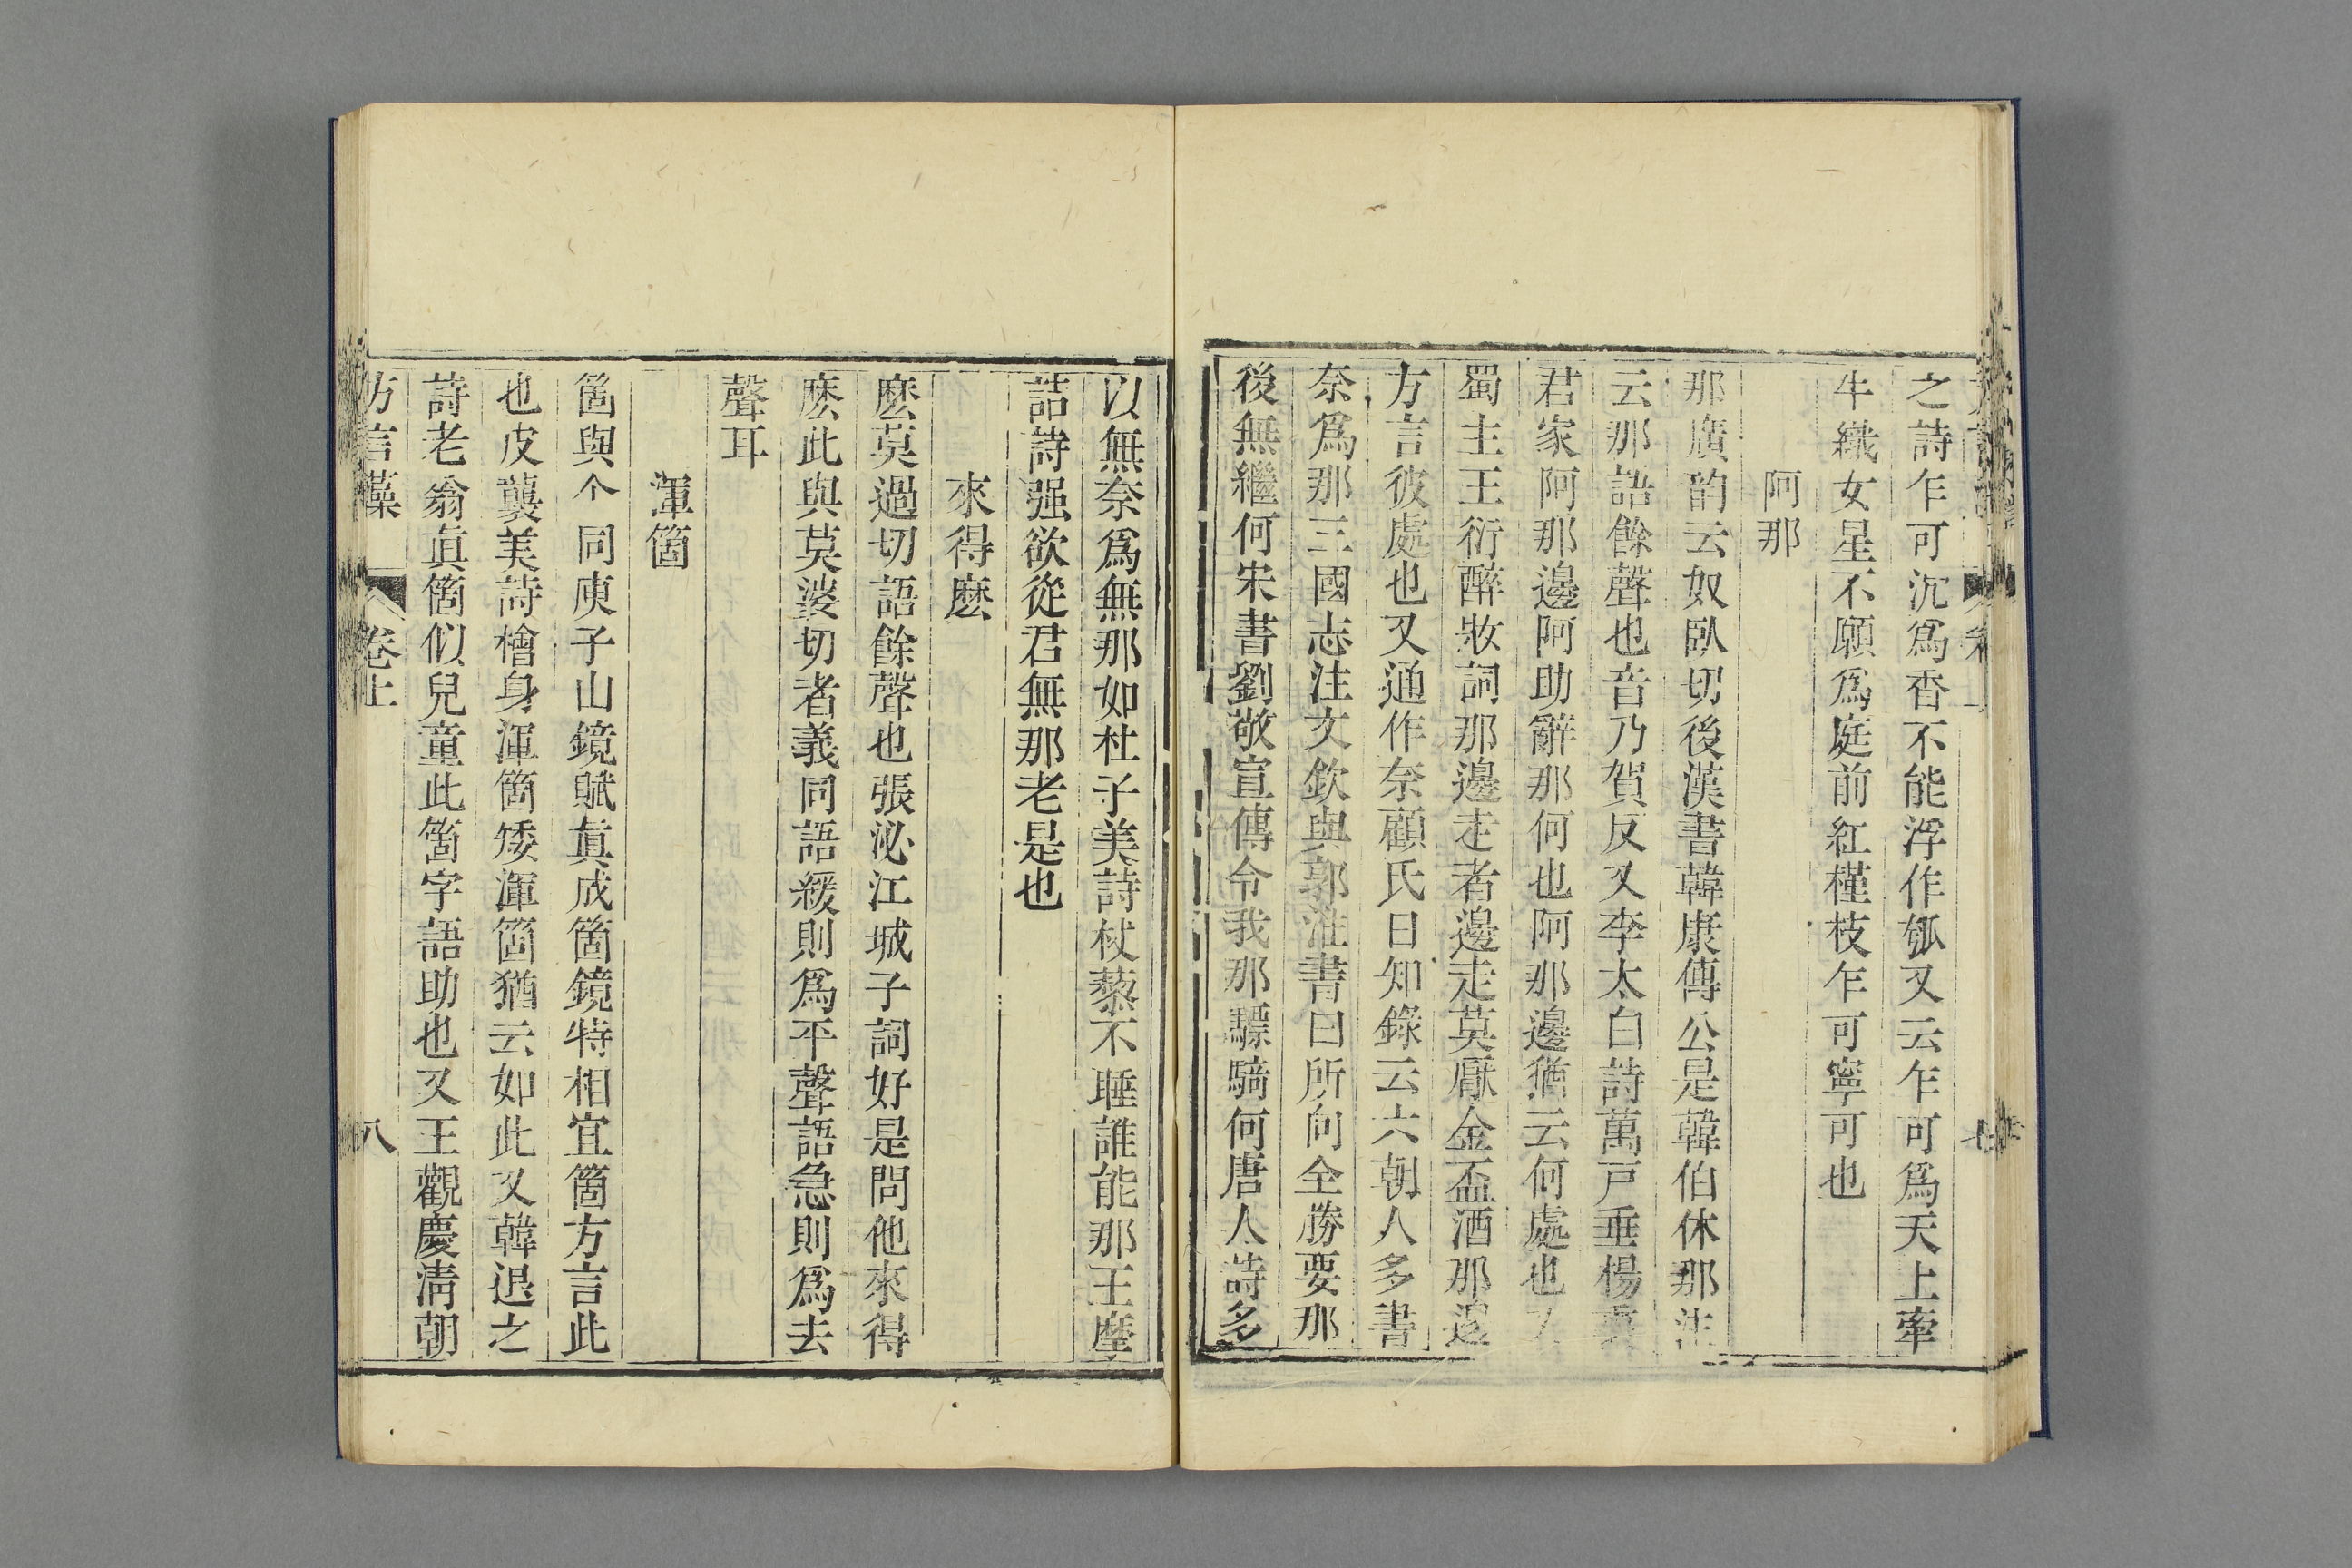 之詩乍可沉爲香不能浮作瓠又云乍可爲天上牽
牛織女星不願爲庭前紅槿枝乍可寧可也
阿那
那廣韵云奴臥切後漢書韓康傳公是韓伯休那注
云那語餘聲也音乃賀反又李太白詩萬戸垂楊裏
君家阿那邊阿助辭那何也阿那邊猶云何處也又
蜀主王衍醉妝詞那邊走者邊走莫厭金盃酒那邊
方言彼處也又通作奈顧氏日知錄云六朝人多書
奈爲那三國志注文欽與郭淮書曰所向全勝要那
後無繼何宋書劉敬宣傳令我那驃騎何唐人詩多
以無奈爲無那如杜子美詩杖藜不睡誰能那王摩
詰詩强欲從君無那老是也
來得麽
麽莫過切語餘聲也張泌江城子詞好是問他來得
麽此與莫婆切者義同語緩則爲平聲語急則爲去
聲耳
渾箇
箇與个同庾子山鏡賦眞成箇鏡特相宜箇方言此
也皮襲美詩檜身渾箇矮渾箇猶云如此又韓退之
詩老翁眞箇似兒童此箇字語助也又王觀慶淸朝
方言藻
卷上
八